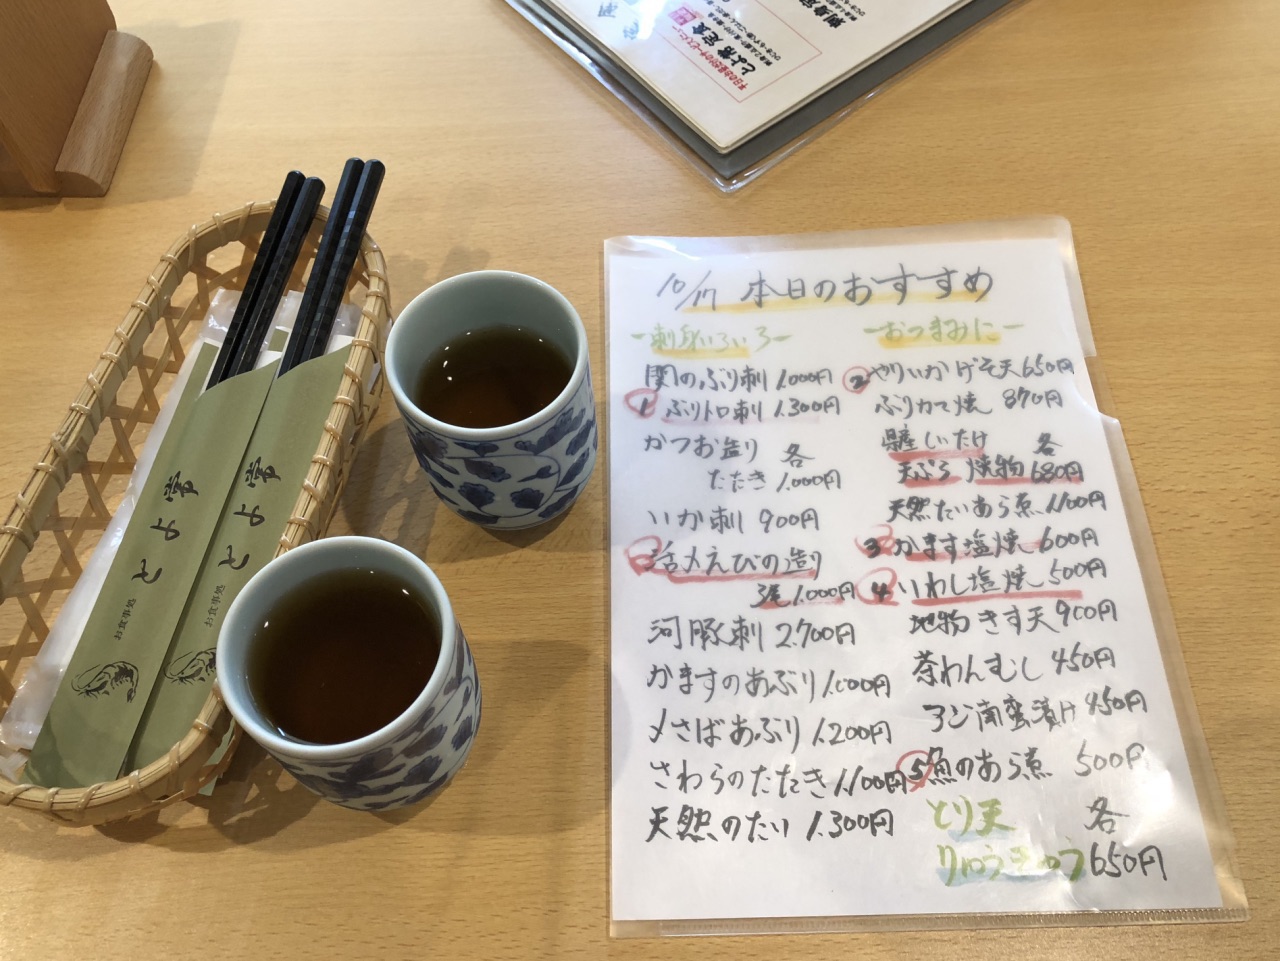 平日のお昼だけのサービスメニュー
とよ常 定食
お食事処 とよ常
お食事処 とよ常
10/17 本日のおすすめ
-刺身いろいろ-
関のぶり刺 1.000円
1 ぶりトロ刺 1.300円
かつお造り 各
たたき 1.000円
いか刺 900円
活〆えびの造り
3尾 1.000円
河豚刺 2.700円
かますのあぶり 1.000円
〆さばあぶり 1.200円
さわらのたたき 1.100円
天然のたい 1.300円
-おつまみに-
2 やりいかげそ天 650円
ぶりカマ焼 870円
県産しいたけ 各
天ぷら 焼物 680円
天然たいあら煮 1.100円
3 かます塩焼 600円
4 いわし塩焼 500円
地物きす天 900円
茶わんむし 450円
アジ南蛮漬け 450円
5 魚のあら煮 500円
とり天 各
りゅうきゅう 650円